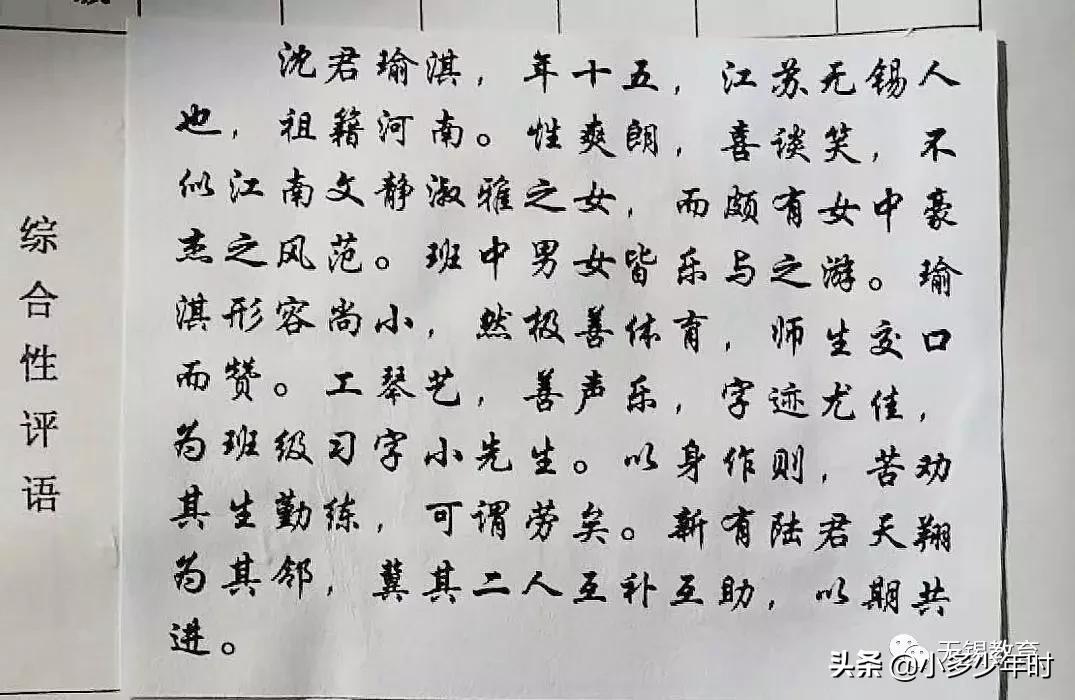 综合性评语
沈君瑜淇，年十五，江苏无锡人
也，祖籍河南。性爽朗，喜谈笑，不
似江南文静淑雅之女，而颇有女中豪
杰之风范。班中男女皆乐与之游。瑜
淇形容尚小，然极善体育，师生交口
而赞。工琴艺，善声乐，字迹尤佳，
为班级习字小先生。以身作则，苦劝
其生勤练，可谓劳矣。新有陆君天翔
为其邻，冀其二人互补互助，以期共
进。
无锡教育
头条 @小多少年时